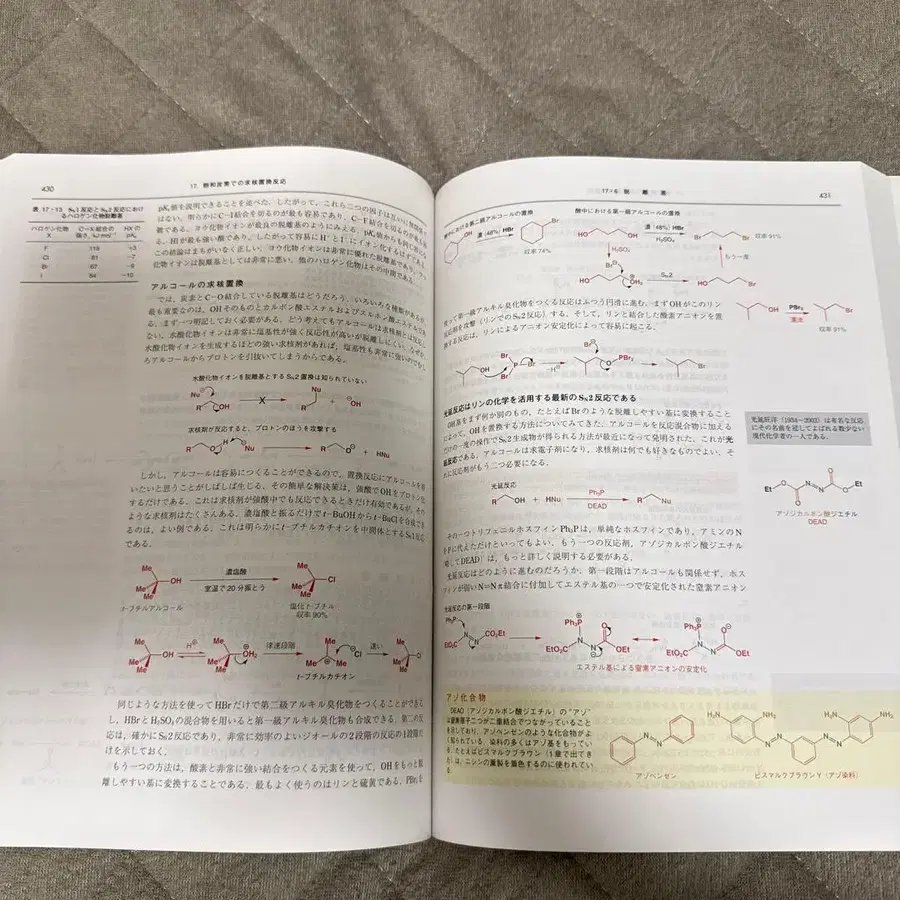 430
17. 飽和炭素での求核置換反応
表 17・13 SN1反応とSN2反応におけ
るハロゲン化物脱離基
ハロゲン化物
X
C−X結合の
強さ, kJ mol⁻¹
HXの
pKa
F 118 +3
Cl 81 −7
Br 67 −9
I 54 −10
pKa値を説明できることを述べた. したがって, これら二つの因子は互いに無関係で
はない. 明らかにC−I結合を切るのが最も容易であり, C−F結合を切るのが最も困
難である. ヨウ化物イオンが最良の脱離基のようにみえる. pKa値からも同じ
る. HIが最も強い酸であり, したがって容易にH⁺とI⁻にイオン化するはずである
この結論はまちがいなく正しい. ヨウ化物イオンは非常に優れた脱離基であり, フッ
化物イオンは脱離基としては非常に悪い. 他のハロゲン化物はその中間である.
アルコールの求核置換
では, 炭素とC−O結合している脱離基はどうだろう. いろいろな種類があるが,
最も重要なのは, OHそのものとカルボン酸エステルおよびスルホン酸エステルであ
る. まず一つ明記しておく必要がある. どう考えてもアルコールは求核剤とは反応し
ない. 水酸化物イオンは非常に塩基性が強く反応性が高いが脱離しにくい. なぜか.
水酸化物イオンを生成するほどの強い求核剤があれば, 塩基性も非常に強いので
ろアルコールからプロトンを引抜いてしまうからである.
水酸化物イオンを脱離基とするSN2置換は知られていない
Nu⊖ R OH X R Nu + ⊖OH
求核剤が反応すると, プロトンのほうを攻撃する
R O H ⊖Nu R O⊖ + HNu
しかし, アルコールは容易につくることができるので, 置換反応にアルコールを用
いたいと思うことがしばしば生じる. その簡単な解決策は, 強酸でOHをプロトン化
するだけである. これは求核剤が強酸中でも反応できるときだけ有効であるが, その
ような求核剤はたくさんある. 濃塩酸と振るだけでt-BuOHからt-BuClを合成でき
るのは, よい例である. これは明らかにt-ブチルカチオンを中間体とするSN1反応
である.
Me Me Me OH 濃塩酸 室温で20分振とう Me Me Me Cl
t-ブチルアルコール
塩化t-ブチル
収率 90%
Me Me Me OH H⊕ Me Me Me OH2 律速段階 Me Me Me ⊖Cl 速い Me Me Me Cl
t-ブチルカチオン
同じような方法を使ってHBrだけで第二級アルキル臭化物をつくることができる
し, HBrとH2SO4の混合物を用いると第一級アルキル臭化物も合成できる. 第二の反
応は, 確かにSN2反応であり, 非常に効率のよいジオールの2段階の反応の1段階だ
けを示しておく.
もう一つの方法は, 酸素と非常に強い結合をつくる元素を使って, OHをもっと脱
離しやすい基に変換することである. 最もよく使うのはリンと硫黄である. PBr3を
17・6 脱離基
431
酸中における第二級アルコールの置換
酸中における第一級アルコールの置換
OH 濃(48%) HBr Br 収率 74%
HO OH 濃(48%) HBr H2SO4 Br Br 収率 91%
H2SO4
もう一度
Br⊖ HO OH2 SN2 HO Br
使って第一級アルキル臭化物をつくる反応はふつう円滑に進む. まずOHがこのリン
反応剤を攻撃(リンでのSN2反応)する. そして, リンと結合した酸素アニオンを置
換する反応は, リンによるアニオン安定化によって容易に起こる.
OH PBr3 還流 Br
収率 91%
OH Br P Br Br −H⊕ Br⊖ O PBr2 Br
光延反応はリンの化学を活用する最新のSN2反応である
OH基をまず何か別のもの, たとえばBrのような脱離しやすい基に変換すること
によって, OHを置換する方法についてみてきた. アルコールを反応混合物に加える
だけの一度の操作でSN2生成物が得られる方法が最近になって発明された. これが光
延反応である. アルコールは求電子剤になり, 求核剤は何でも好きなものでよい. そ
れに反応剤がもう二つ必要になる.
光延旺洋(1934〜2003)は有名な反応
にその名前を冠してよばれる数少ない
現代化学者の一人である.
光延反応
R OH + HNu Ph3P R Nu
EtO O N N O OEt
アゾジカルボン酸ジエチル
DEAD
その一つトリフェニルホスフィンPh3Pは, 単純なホスフィンであり, アミンのN
をPに代えただけといってもよい. もう一つの反応剤, アゾジカルボン酸ジエチル
略してDEAD〕は, もっと詳しく説明する必要がある.
光延反応はどのように進むのだろうか. 第一段階はアルコールも関係せず, ホス
フィンが弱いN=Nπ結合に付加してエステル基の一つで安定化された窒素アニオン
光延反応の第一段階
Ph3P EtO2C N N CO2Et Ph3P⊕ EtO2C N N O OEt Ph3P⊕ EtO2C N N O⊖ OEt
エステル基による窒素アニオンの安定化
アゾ化合物
DEAD〔アゾジカルボン酸ジエチル〕の“アゾ”
は窒素原子二つが二重結合でつながっていること
を示しており, アゾベンゼンのような化合物がよ
く知られている. 染料の多くはアゾ基をもってい
る. たとえばビスマルクブラウン(1章で出てき
た)は, ニシンの薫製を着色するのに使われてい
る.
N N
アゾベンゼン
H2N NH2 N N N N H2N NH2
ビスマルクブラウンY(アゾ染料)